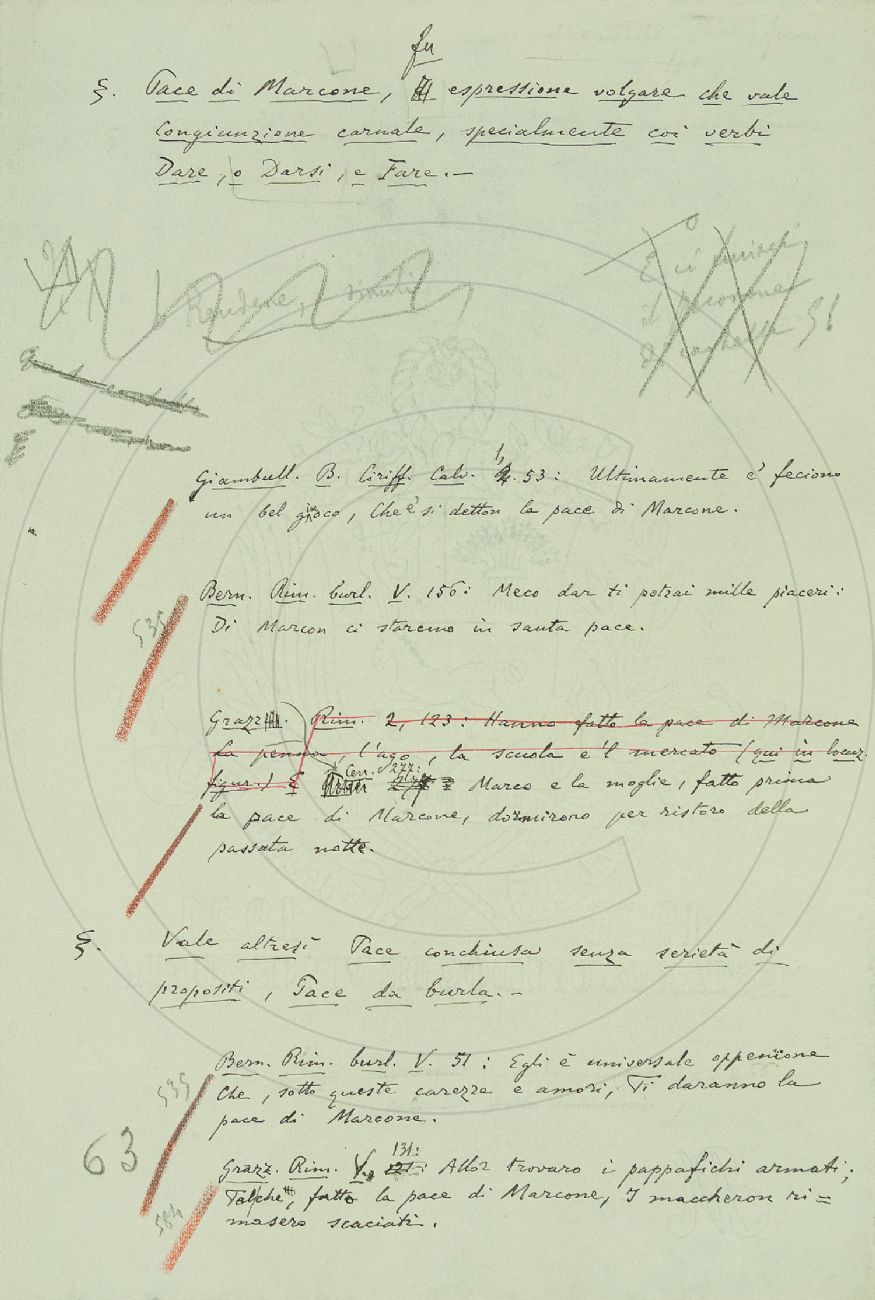 fu
§. Pace di Marcone, espressione volgare che vale
Congiunzione carnale, specialmente coi verbi
Dare, o Darsi, e Fare.—
Rendere, simili
E ci unirai
il Marcone
di carta 51
Giambull. B. Ciriff. Calv. 1, 2. 53: Ultimamente e' feciono
un bel gioco, Che e' si detton la pace di Marcone.
Bern. Rim. burl. V. 156: Meco dar ti potrai mille piaceri:
535
Di Marcon ci staremo in santa pace.
Grazz. Rim. 2, 123: Hanno fatto la pace di Marcone
La penna, l'ago, la scuola e 'l mercato (qui in locuz.
figur.) E Cen. 277: Marco e la moglie, fatto prima
la pace di Marcone, dormirono per ristoro della
passata notte.
§. Vale altresì Pace conchiusa senza serietà di
propositi, Pace da burla.—
Bern. Rim. burl. V. 51: Egli è universale oppenïone
535
Che, sotto queste carezze e amori, Ti daranno la
pace di Marcone.
63
131:
Grazz. Rim. V., 121: Allor trovaro i pappafichi armati;
Talchè, fatto la pace di Marcone, I maccheron ri=
584
masero scaciati.